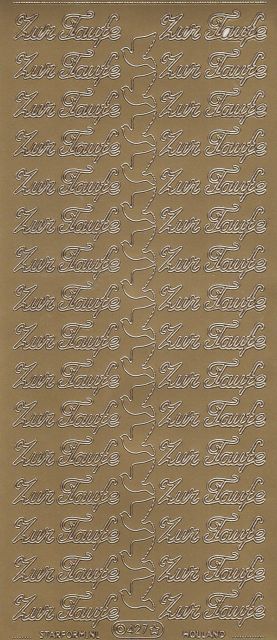 Zur Taufe Zur Taufe
Zur Taufe Zur Taufe
Zur Taufe Zur Taufe
Zur Taufe Zur Taufe
Zur Taufe Zur Taufe
Zur Taufe Zur Taufe
Zur Taufe Zur Taufe
Zur Taufe Zur Taufe
Zur Taufe Zur Taufe
Zur Taufe Zur Taufe
Zur Taufe Zur Taufe
Zur Taufe Zur Taufe
Zur Taufe Zur Taufe
Zur Taufe Zur Taufe
Zur Taufe Zur Taufe
Zur Taufe Zur Taufe
STARFORM.NL © 427 HOLLAND